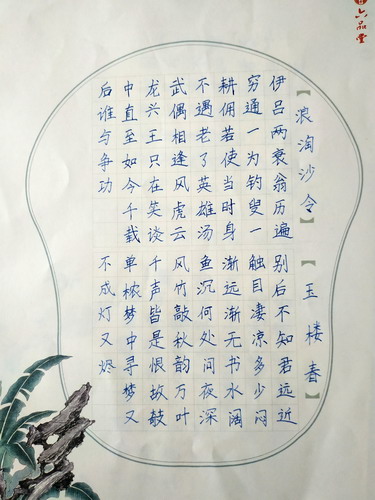 六品堂
【浪淘沙令】
伊吕两衰翁历遍
穷通一为钓叟一
耕佣若使当时身
不遇老了英雄汤
武偶相逢风虎云
龙兴王只在笑谈
中直至如今千载
后谁与争功
【玉楼春】
别后不知君远近
触目凄凉多少闷
渐远渐无书水阔
鱼沉何处问夜深
风竹敲秋韵万叶
千声皆是恨故敧
单枕梦中寻梦又
不成灯又烬